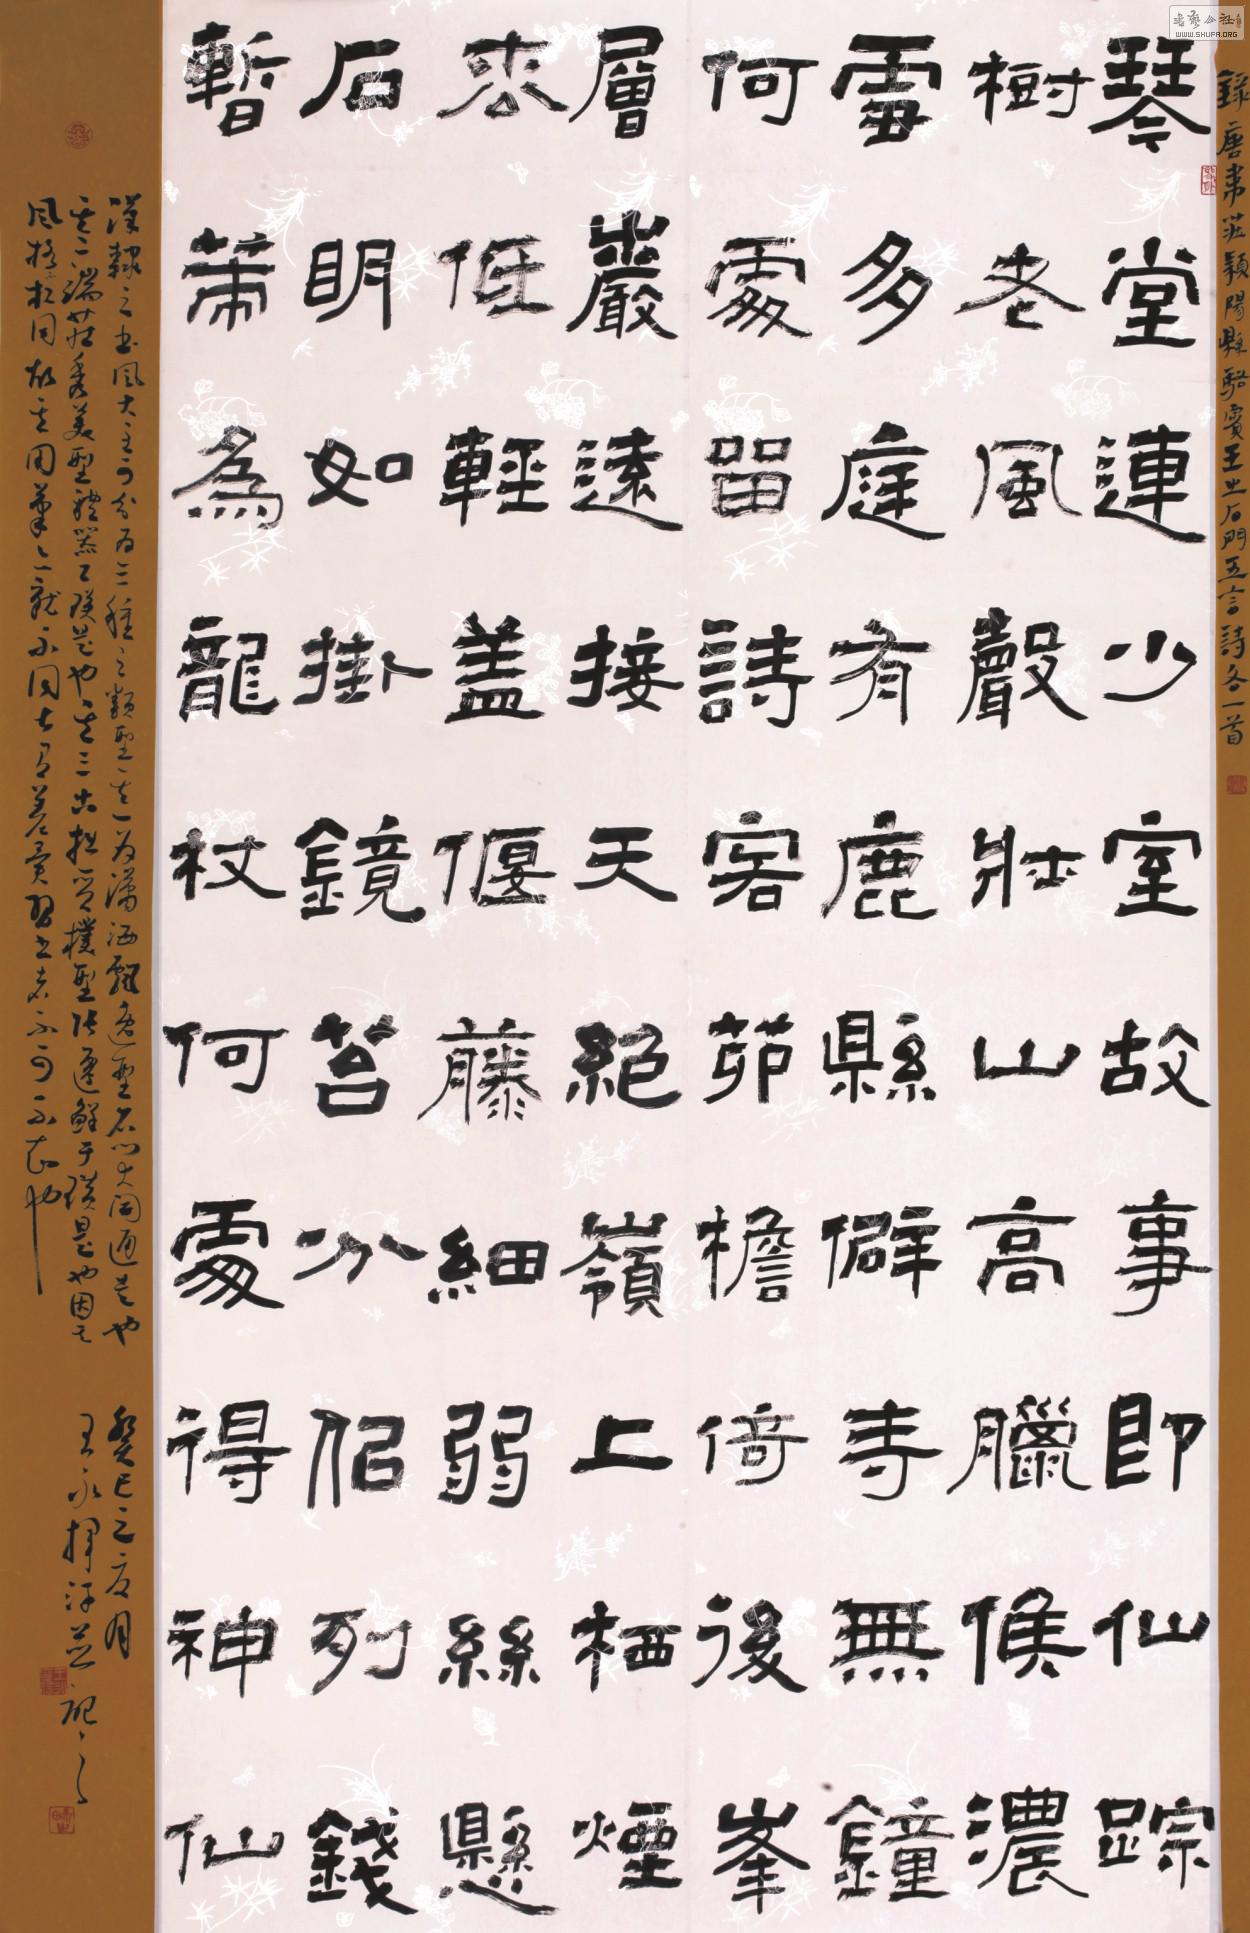 錄唐韋莊潁陽縣駱賓王出石門五言詩各一首
琴堂連少室故事即仙踪
樹老風聲壯山高臘候濃
雪多庭有鹿縣僻寺無鐘
何處留詩客茆檐倚後峯
層巖遠接天絕嶺上栖煙
松低輕盖偃藤細弱絲懸
石明如掛鏡苔分似列錢
暫策為龍杖何處得神仙
漢隸之書風大主可分為三種之類型其一為瀟洒飄逸型石門大開通是也
其二端莊秀美型禮器乙瑛是也其三古拙質樸型張遷鮮于璜是也因其
風格不同故其用筆亦就不同大有差異習書者不可不知也
癸巳之夏月
王永揮汗並記之
书艺公社
WWW.SHUFA.ORG